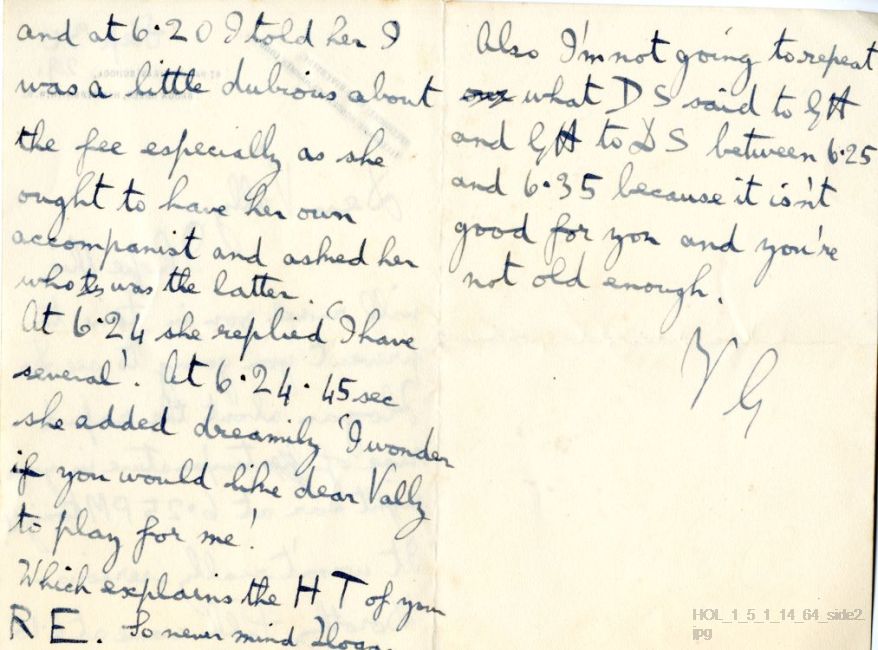 and at 6·20 I told her I
was a little dubious about
the fee especially as she
ought to have her own
accompanist and asked her
who was the latter.
At 6·24 she replied 'I have
several'. At 6·24·45 sec
she added dreamily 'I wonder
if you would like dear Vally
to play for me!'
Which explains the H T of your
R E. So never mind
Also I'm not going to repeat
what D S said to G H
and G H to D S between 6·25
and 6·35 because it isn't
good for you and you're
not old enough.
V G
HOL_1_5_1_14_64_side2.
jpg